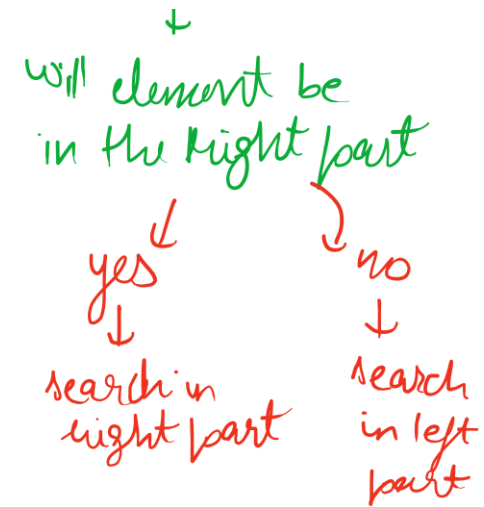 will element be
in the right part
yes
no
search in
right part
search
in left
part